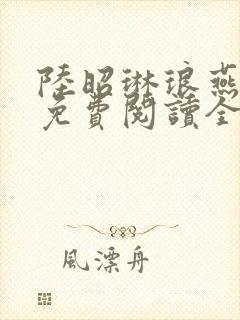 陸昭琳琅燕
免費閱讀全
風漂舟